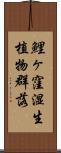 鯉ヶ窪湿生
植物群落